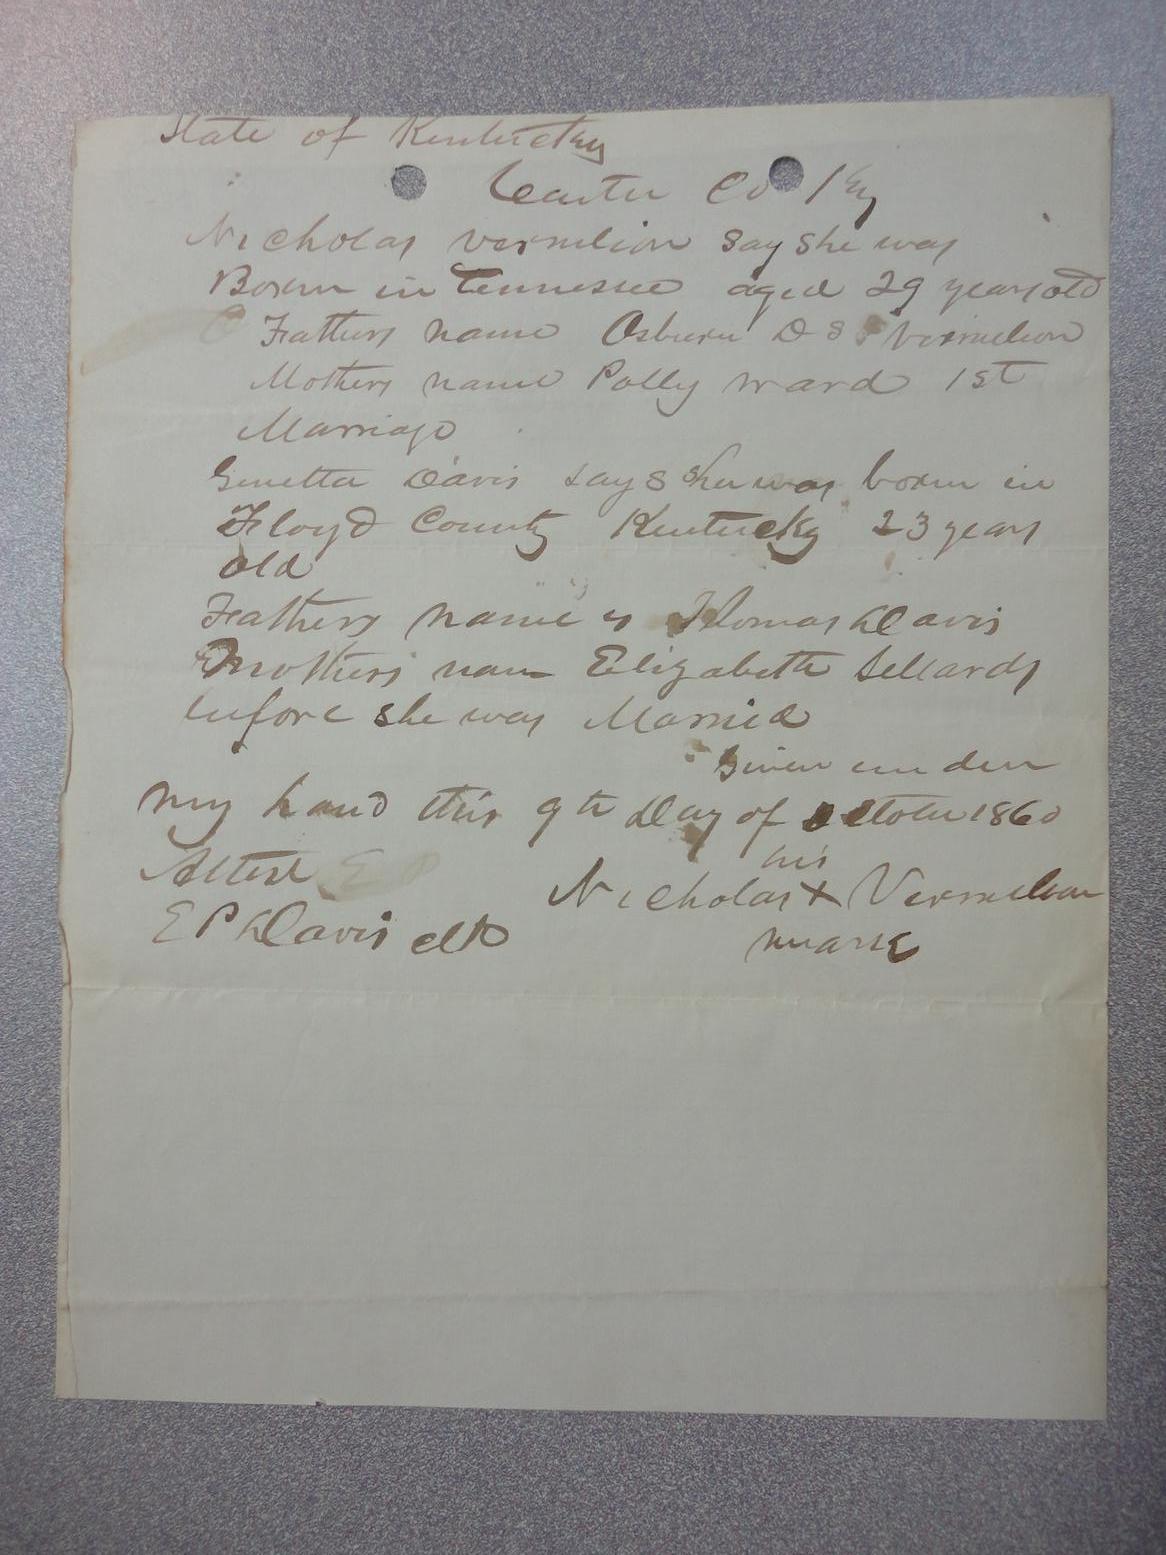 State of Kentucky
Carter Co Ky
Nicholas vermelion say she was
Born in Tennessee aged 29 years old
Fathers name Osburn D S Vermelion
Mothers name Polly ward 1st
Marriage
Genetta Davis says she was born in
Floyd County Kentucky 23 years
old
Fathers name is Thomas Davis
Mothers nam Elizabeth Sellards
before she was Married
Given under
my hand this 9th Day of october 1860
his
Attest
Nicholas X Vermelion
E P Davis clk
mark